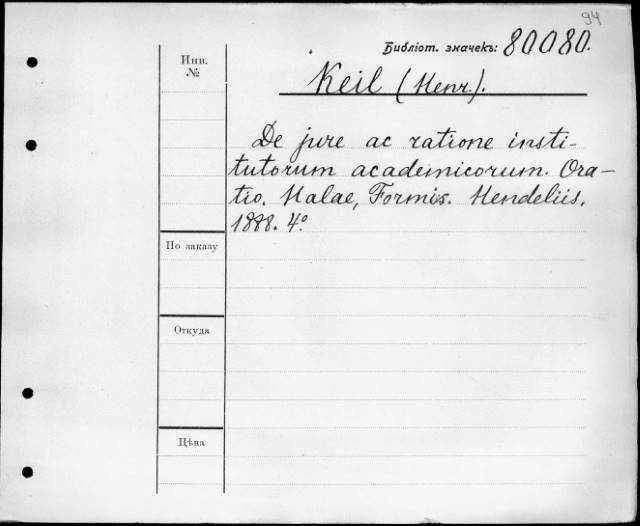 94
Библіот. значекъ: 80080.
Инв.
№
Keil (Henr.).
De jure ac ratione insti-
tutorum academicorum. Ora-
tio. Halae, Formis. Hendeliis.
1888. 4º
По заказу
Откуда
Цѣна